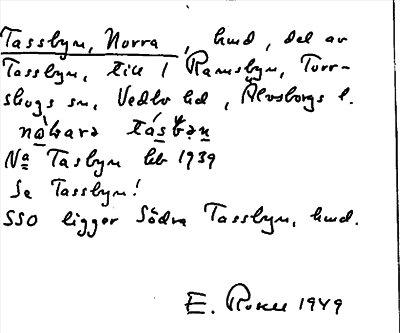 Tassbyn, Norra, hmd, del av
Tassbyn, till 1 Ramsbyn, Torr-
skogs sn, Vedbo hd, Älvsborgs l.
nǫ̀hara tásbən
Na Tasbyn hb 1939
Se Tassbyn!
SSO ligger Södra Tassbyn, hmd.
E. 1949